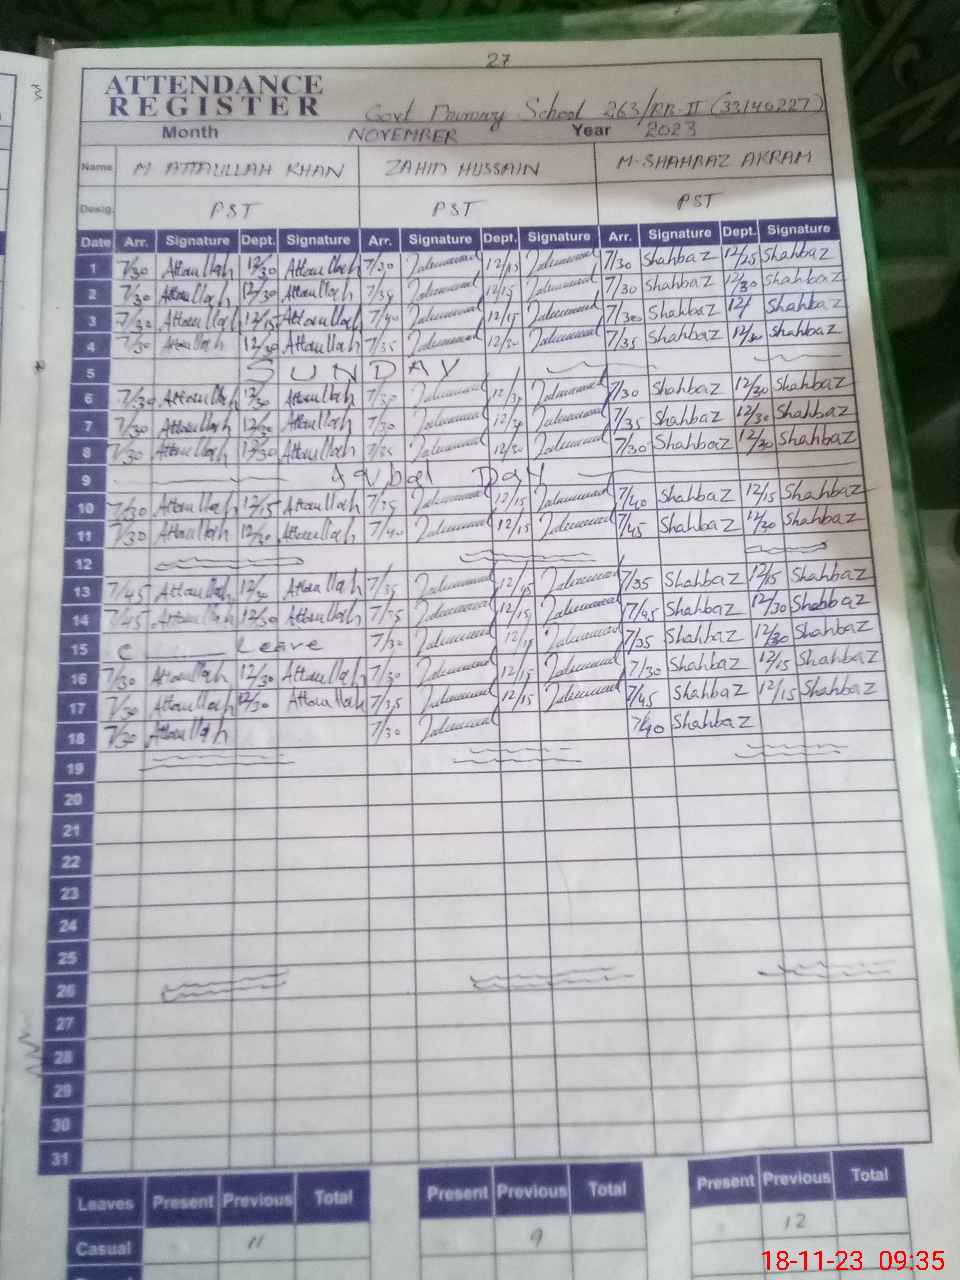 27
ATTENDANCE
REGISTER
Govt Primary School 263/RB-II (33140227)
Month NOVEMBER Year 2023
Name M ATTAULLAH KHAN ZAHID HUSSAIN M-SHAHBAZ AKRAM
Desig. PST PST PST
Date Arr. Signature Dept. Signature Arr. Signature Dept. Signature Arr. Signature Dept. Signature
1 7/30 Attaullah 12/30 Attaullah 7/30 12/15 7/30 Shahbaz 12/15 Shahbaz
2 7/30 Attaullah 12/30 Attaullah 7/35 12/15 7/30 Shahbaz 12/30 Shahbaz
3 7/30 Attaullah 12/15 Attaullah 7/40 12/15 7/30 Shahbaz 12/ Shahbaz
4 7/30 Attaullah 12/30 Attaullah 7/35 12/30 7/35 Shahbaz Shahbaz
5 SUNDAY
6 7/30 Attaullah 12/30 Attaullah 7/30 Shahbaz 12/30 Shahbaz
7 7/30 Attaullah 12/30 Attaullah 7/30 7/35 Shahbaz 12/30 Shahbaz
8 7/30 Attaullah 12/30 Attaullah 7/35 12/30 7/30 Shahbaz 12/30 Shahbaz
9 Iqbal Day
10 7/30 Attaullah 12/15 Attaullah 7/35 12/15 7/40 Shahbaz 12/15 Shahbaz
11 7/30 Attaullah 12/30 Attaullah 7/40 12/15 7/45 Shahbaz 12/30 Shahbaz
12
13 7/45 Attaullah 12/30 Attaullah 7/35 12/45 7/35 Shahbaz 12/15 Shahbaz
14 7/45 Attaullah 12/30 Attaullah 7/35 12/15 7/45 Shahbaz 12/30 Shahbaz
15 C Leave 7/30 7/35 Shahbaz 12/30 Shahbaz
16 7/30 Attaullah 12/30 Attaullah 7/30 12/15 7/30 Shahbaz 12/15 Shahbaz
17 7/30 Attaullah 12/30 Attaullah 7/35 12/15 7/45 Shahbaz 12/15 Shahbaz
18 7/30 Attaullah 7/30 7/40 Shahbaz
19
20
21
22
23
24
25
26
27
28
29
30
31
Leaves Present Previous Total Present Previous Total Present Previous Total
Casual 11 9 12
18-11-23 09:35